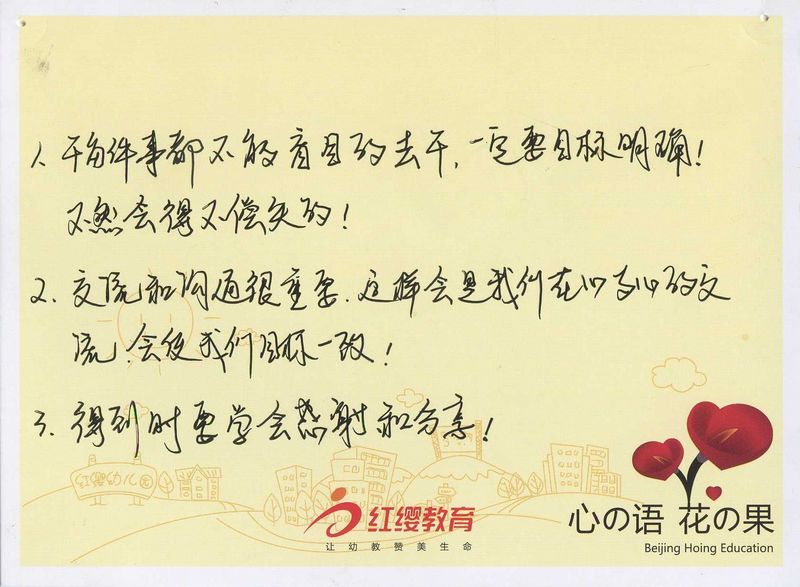 1. 干每件事都不能盲目的去干,一定要目标明确!
不然会得不偿失的!
2. 交流和沟通很重要.这样会是我们在心与心的交
流.会使我们目标一致!
3. 得到时要学会感谢和分享!
红缨幼儿园
红缨教育
让幼教赞美生命
心の语 花の果
Beijing Hoing Education